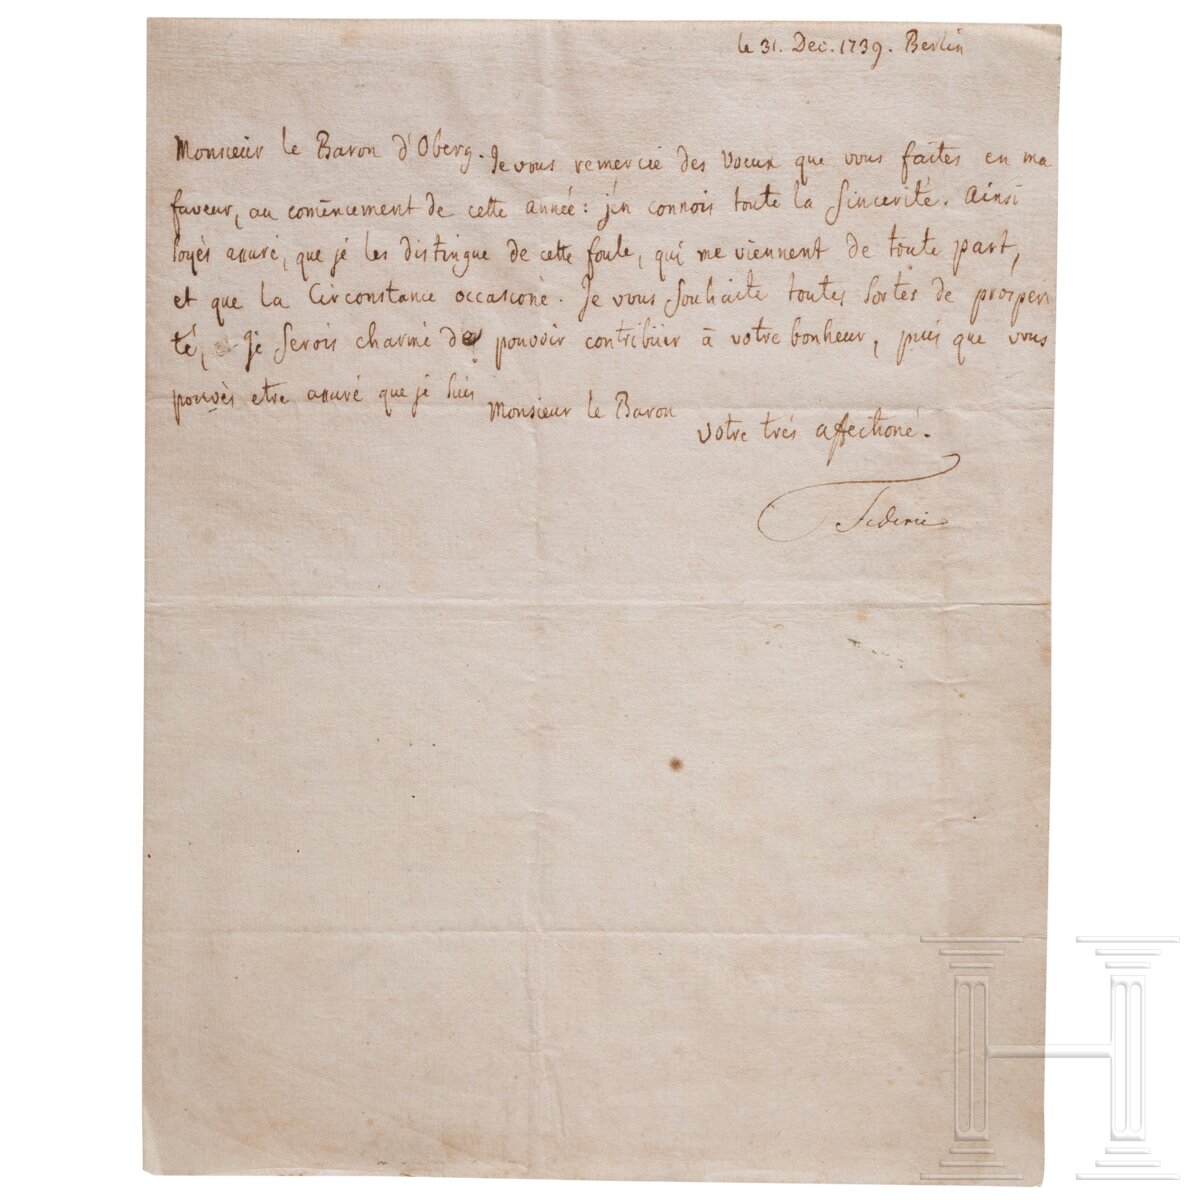 le 31. Dec. 1739. Berlin
Monsieur le Baron d'Oberg. Je vous remercie des voeux que vous faites en ma
faveur, au com̄encement de cette année: j'en connois toute la Sincerité. Ainsi
soyés assuré, que je les distingue de cette foule, qui me viennent de toute part,
et que la Circonstance occasione. Je vous souhaite toutes sortes de prosperi
té, je serois charmé de pouvoir contribüer à votre bonheur, puis que vous
pouvés etre assuré que je suis
Monsieur le Baron
votre trés affectioné.
Federic